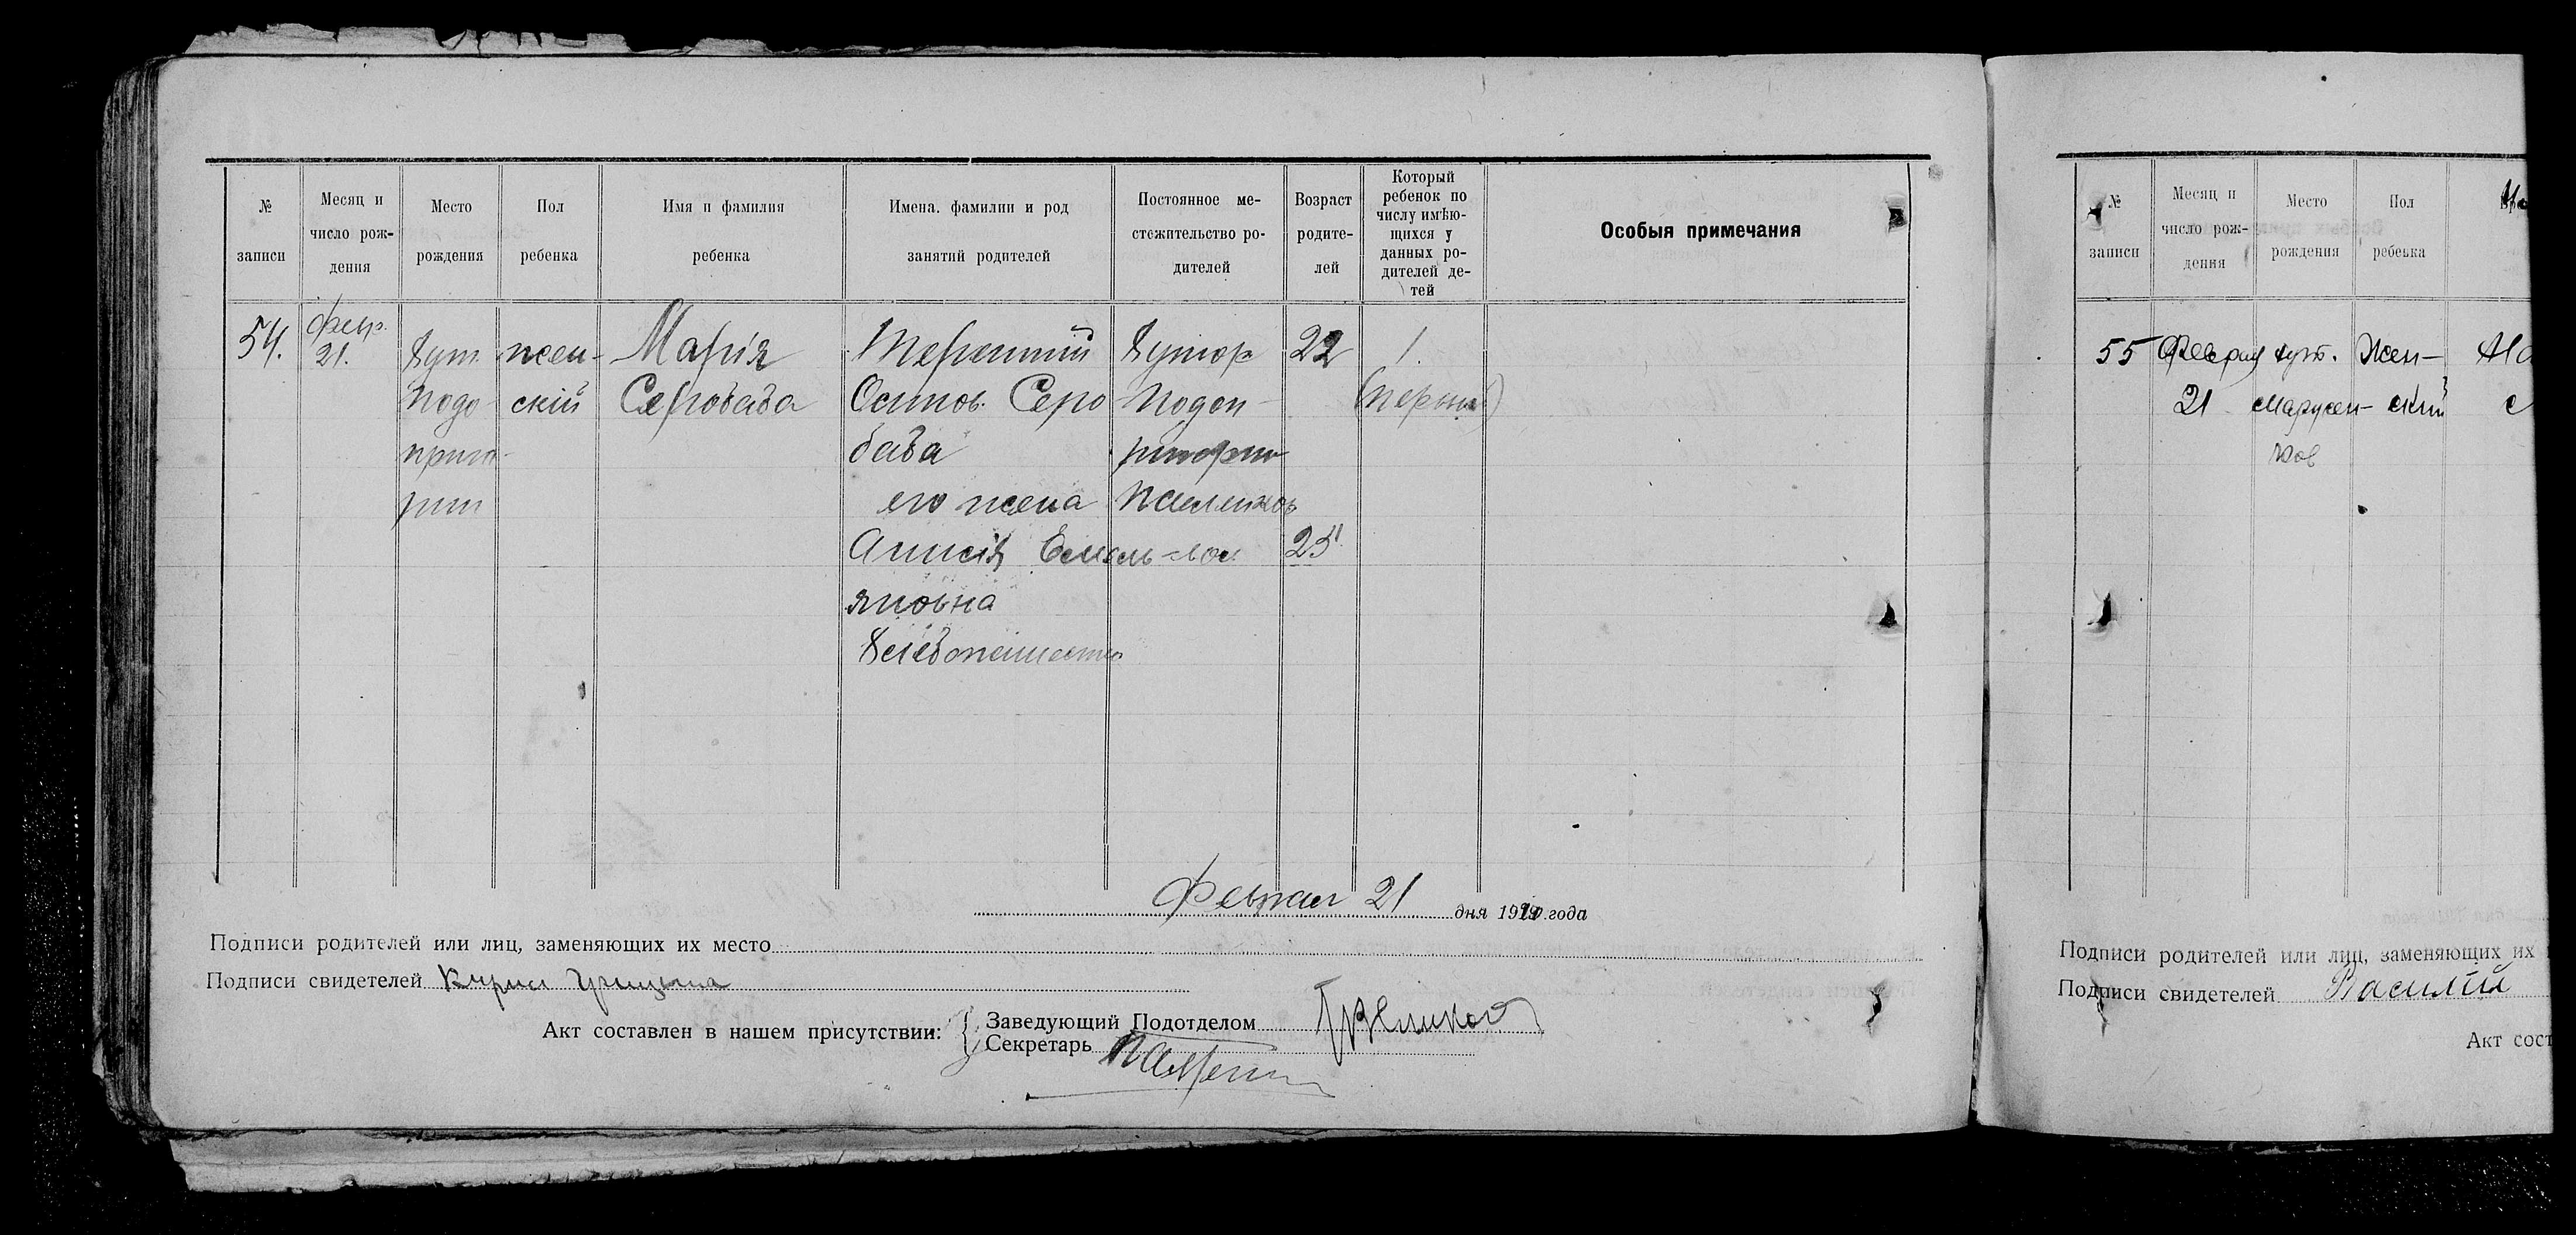 № записи
Месяц и число рож-дения
Место рождения
Пол ребенка
Имя и фамилия ребенка
Имена, фамилии и род занятий родителей
Постоянное ме-стожительство ро-дителей
Возраст родите-лей
Который ребенок по числу имѣю-щихся у данных ро-дителей де-тей
Особыя примечания
54.
февр.
21.
хут.
Подо-
приго-
жен-
скій
Марія
Серобаба
Терентий
Осипов. Серо
баба
его жена
Анисія Емель-
яновна
Хлебопашество
Хутор
22
25
1.
(первый)
Феврал 21 дня 1920 года
Подписи родителей или лиц, заменяющих их место
Подписи свидетелей Кирил Грицына
Акт составлен в нашем присутствии:
Заведующий Подотделом
Секретарь
№ записи
Месяц и число рож-дения
Место рождения
Пол ребенка
55
Феврал
21
хут.
Марусен-
ков
Жен-
ский
Подписи родителей или лиц, заменяющих их
Подписи свидетелей Василий
Акт сост